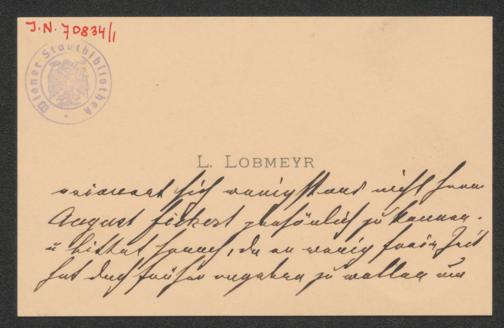 J.N. 70834/1
Wiener Stadtbibliothek
L. LOBMEYR
erinnert sich wenigstens nicht Herrn
August Sickert persönlich zu kennen.
u bittet, da er wenig freie Zeit
hat früher angeben zu wollen um